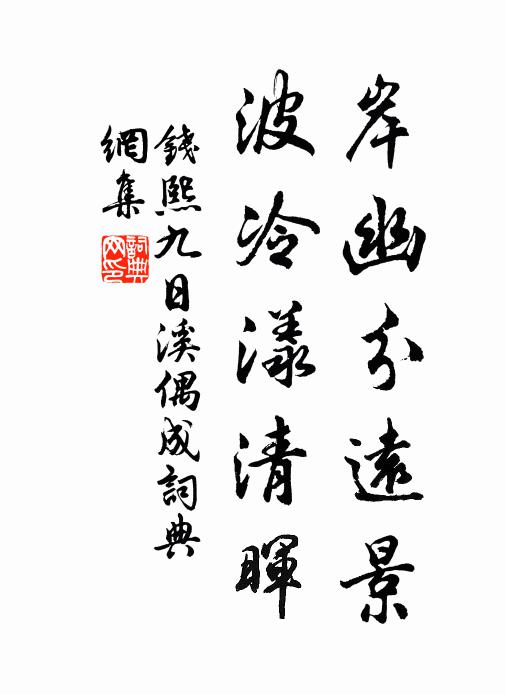 岸幽分遠景
波冷漾清暉
錢熙九日溪偶成詞典
網集
詞典網印